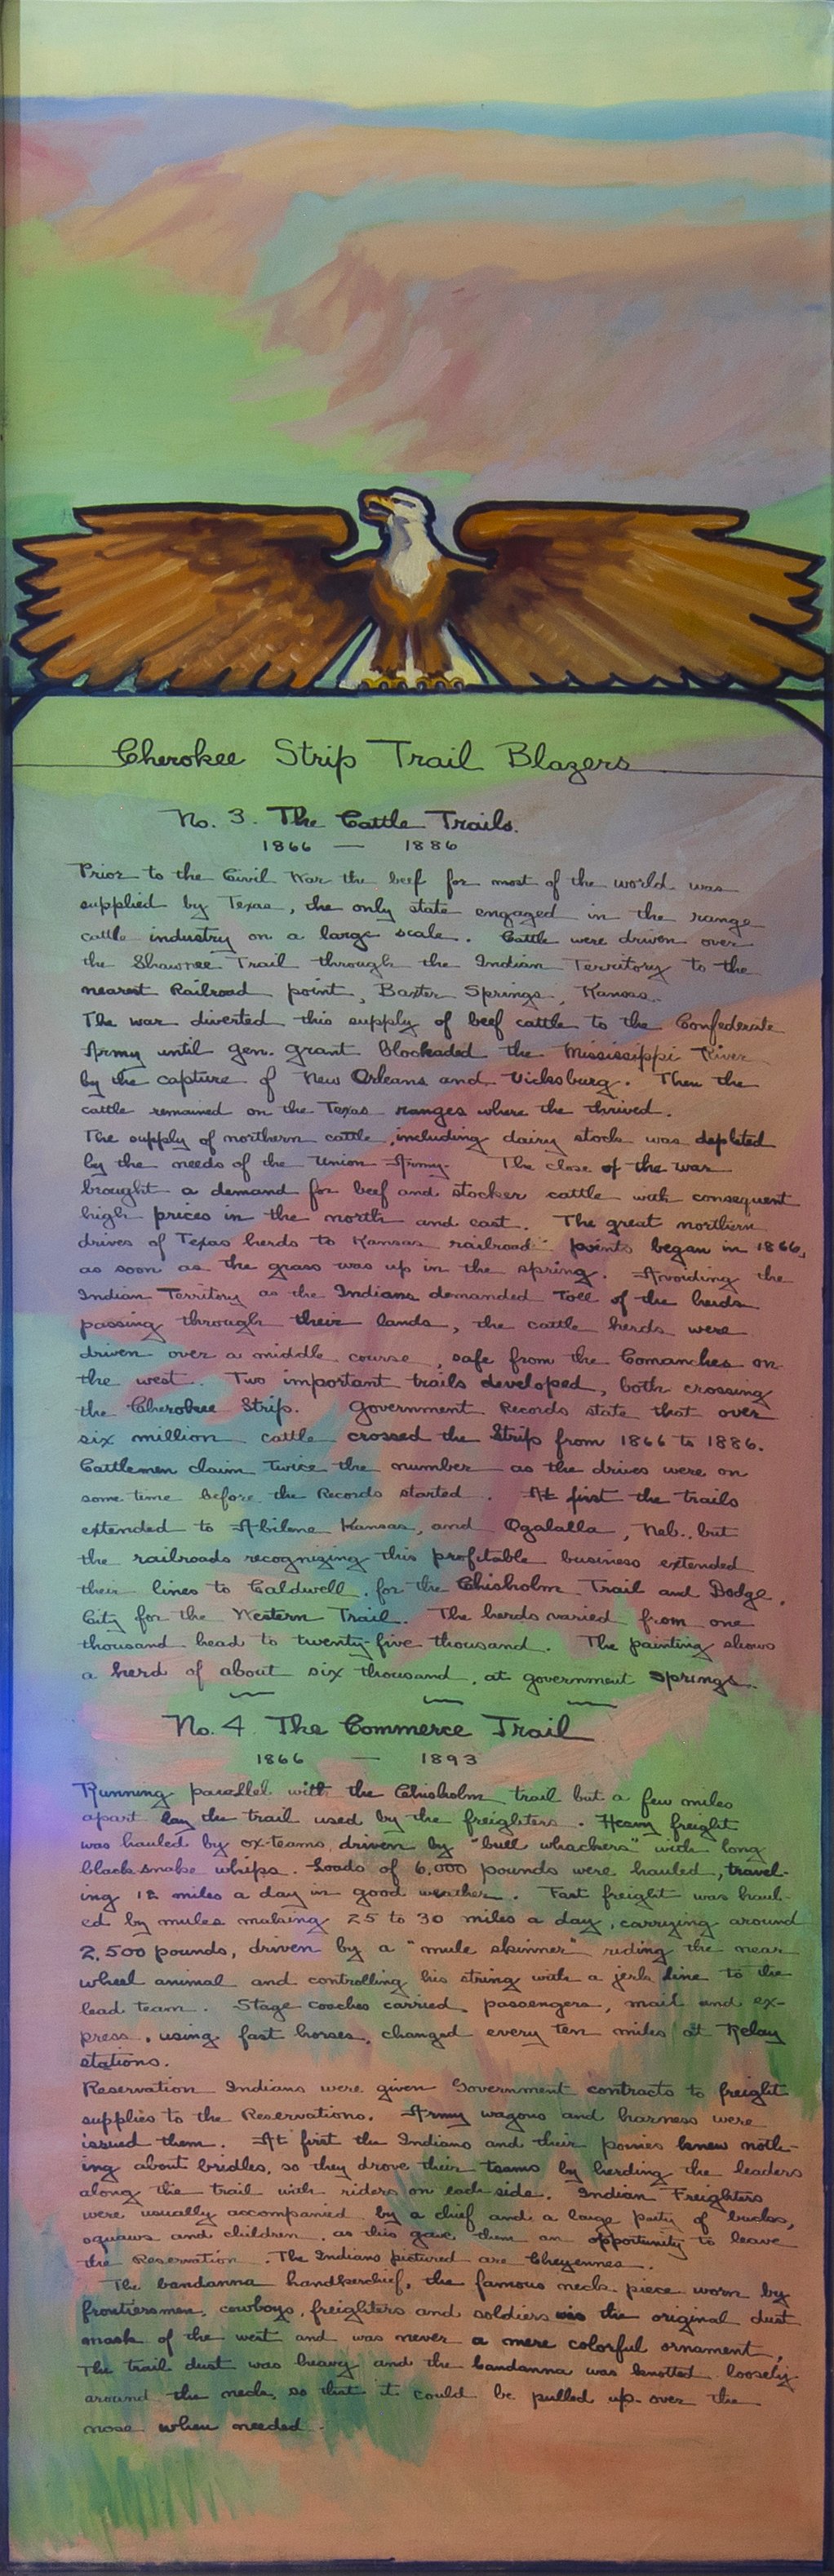 Cherokee Strip Trail Blazers
No. 3. The Cattle Trails.
1866 — 1886
Prior to the Civil War the beef for most of the world was
supplied by Texas, the only state engaged in the range
cattle industry on a large scale. Cattle were driven over
the Shawnee Trail through the Indian Territory to the
nearest Railroad point, Baxter Springs, Kansas.
The war diverted this supply of beef cattle to the Confederate
Army until gen. grant blockaded the Mississippi River
by the capture of New Orleans and Vicksburg. Then the
cattle remained on the Texas ranges where the thrived.
The supply of northern cattle, including dairy stock was depleted
by the needs of the Union Army. The close of the war
brought a demand for beef and stocker cattle with consequent
high prices in the north and east. The great northern
drives of Texas herds to Kansas railroad points began in 1866,
as soon as the grass was up in the spring. Avoiding the
Indian Territory as the Indians demanded Toll of the herds
passing through their lands, the cattle herds were
driven over a middle course, safe from the Comanches on
the west. Two important trails developed, both crossing
the Cherokee Strip. Government Records state that over
six million cattle crossed the Strip from 1866 to 1886.
Cattlemen claim twice the number as the drives were on
some time before the Records started. At first the trails
extended to Abilene Kansas, and Ogalalla, Neb., but
the railroads recognizing this profitable business extended
their lines to Caldwell, for the Chisholm Trail and Dodge,
City for the Western Trail. The herds varied from one
thousand head to twenty-five thousand. The painting shows
a herd of about six thousand, at government springs.
No. 4. The Commerce Trail
1866 — 1893
Running parallel with the Chisholm trail but a few miles
apart lay the trail used by the freighters. Heavy freight
was hauled by ox-teams driven by "bull whackers" with long
black snake whips. Loads of 6,000 pounds were hauled, travel-
ing 12 miles a day in good weather. Fast freight was haul-
ed by mules making 25 to 30 miles a day, carrying around
2,500 pounds, driven by a "mule skinner" riding the near
wheel animal and controlling his string with a jerk line to the
lead team. Stage coaches carried passengers, mail and ex-
press, using fast horses, changed every ten miles at Relay
stations.
Reservation Indians were given Government contracts to freight
supplies to the Reservations. Army wagons and harness were
issued them. At first the Indians and their ponies knew noth-
ing about bridles, so they drove their teams by herding the leaders
along the trail with riders on each side. Indian Freighters
were usually accompanied by a chief and a large party of bucks,
squaws and children, as this gave them an opportunity to leave
the Reservation. The Indians pictured are Cheyennes.
The bandanna handkerchief, the famous neck piece worn by
frontiersmen, cowboys, freighters and soldiers was the original dust
mask of the west and was never a mere colorful ornament,
The trail dust was heavy and the bandanna was knotted loosely
around the neck, so that it could be pulled up over the
nose when needed.